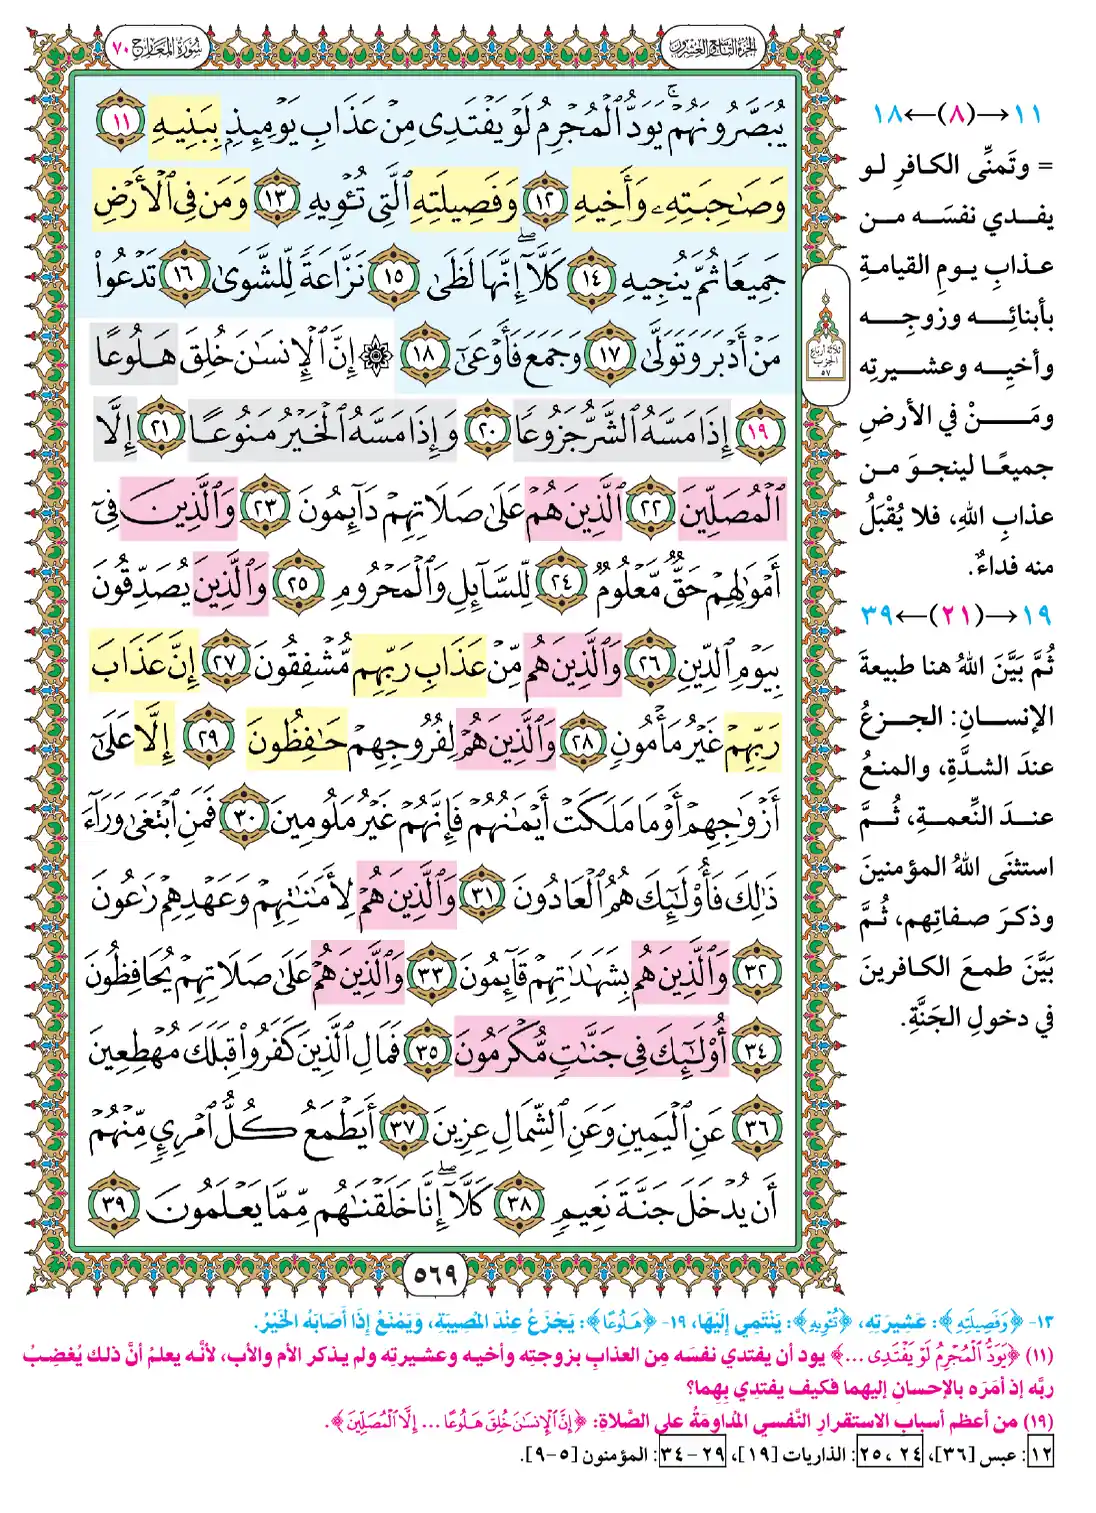 الجزء التاسع والعشرون
سورة المعارج ٧٠
يُبَصَّرُونَهُمْ ۚ يَوَدُّ الْمُجْرِمُ لَوْ يَفْتَدِى مِنْ عَذَابِ يَوْمِئِذٍۭ بِبَنِيهِ ١١
وَصَٰحِبَتِهِۦ وَأَخِيهِ ١٢ وَفَصِيلَتِهِ الَّتِى تُـْٔوِيهِ ١٣ وَمَن فِى الْأَرْضِ
جَمِيعًا ثُمَّ يُنجِيهِ ١٤ كَلَّآ ۖ إِنَّهَا لَظَىٰ ١٥ نَزَّاعَةً لِّلشَّوَىٰ ١٦ تَدْعُوا۟
مَنْ أَدْبَرَ وَتَوَلَّىٰ ١٧ وَجَمَعَ فَأَوْعَىٰٓ ١٨ ۞ إِنَّ الْإِنسَٰنَ خُلِقَ هَلُوعًا
١٩ إِذَا مَسَّهُ الشَّرُّ جَزُوعًا ٢٠ وَإِذَا مَسَّهُ الْخَيْرُ مَنُوعًا ٢١ إِلَّا
الْمُصَلِّينَ ٢٢ الَّذِينَ هُمْ عَلَىٰ صَلَاتِهِمْ دَآئِمُونَ ٢٣ وَالَّذِينَ فِىٓ
أَمْوَٰلِهِمْ حَقٌّ مَّعْلُومٌ ٢٤ لِّلسَّآئِلِ وَالْمَحْرُومِ ٢٥ وَالَّذِينَ يُصَدِّقُونَ
بِيَوْمِ الدِّينِ ٢٦ وَالَّذِينَ هُم مِّنْ عَذَابِ رَبِّهِم مُّشْفِقُونَ ٢٧ إِنَّ عَذَابَ
رَبِّهِمْ غَيْرُ مَأْمُونٍ ٢٨ وَالَّذِينَ هُمْ لِفُرُوجِهِمْ حَٰفِظُونَ ٢٩ إِلَّا عَلَىٰٓ
أَزْوَٰجِهِمْ أَوْ مَا مَلَكَتْ أَيْمَٰنُهُمْ فَإِنَّهُمْ غَيْرُ مَلُومِينَ ٣٠ فَمَنِ ابْتَغَىٰ وَرَآءَ
ذَٰلِكَ فَأُو۟لَٰٓئِكَ هُمُ الْعَادُونَ ٣١ وَالَّذِينَ هُمْ لِأَمَٰنَٰتِهِمْ وَعَهْدِهِمْ رَٰعُونَ
٣٢ وَالَّذِينَ هُم بِشَهَٰدَٰتِهِمْ قَآئِمُونَ ٣٣ وَالَّذِينَ هُمْ عَلَىٰ صَلَاتِهِمْ يُحَافِظُونَ
٣٤ أُو۟لَٰٓئِكَ فِى جَنَّٰتٍ مُّكْرَمُونَ ٣٥ فَمَالِ الَّذِينَ كَفَرُوا۟ قِبَلَكَ مُهْطِعِينَ
٣٦ عَنِ الْيَمِينِ وَعَنِ الشِّمَالِ عِزِينَ ٣٧ أَيَطْمَعُ كُلُّ امْرِئٍ مِّنْهُمْ
أَن يُدْخَلَ جَنَّةَ نَعِيمٍ ٣٨ كَلَّآ ۖ إِنَّا خَلَقْنَٰهُم مِّمَّا يَعْلَمُونَ ٣٩
ثلاثة أرباع
الحزب
٥٧
١١→(٨)←١٨
= وتَمنِّى الكافرِ لو
يفدي نفسَه من
عذابِ يومِ القيامةِ
بأبنائِه وزوجِه
وأخيِه وعشيرتِه
ومَنْ في الأرضِ
جميعًا لينجوَ من
عذابِ اللهِ، فلا يُقْبَلُ
منه فداءٌ.
١٩→(٢١)←٣٩
ثُمَّ بَيَّنَ اللهُ هنا طبيعةَ
الإنسانِ: الجزعُ
عندَ الشدَّةِ، والمنعُ
عندَ النِّعمةِ، ثُمَّ
استثنَى اللهُ المؤمنينَ
وذكرَ صفاتِهم، ثُمَّ
بَيَّنَ طمعَ الكافرينَ
في دخولِ الجَنَّةِ.
٥٦٩
١٣- ﴿وَفَصِيلَتِهِ﴾: عَشِيرَتِهِ، ﴿تُـْٔوِيهِ﴾: يَنْتَمِي إِلَيْهَا، ١٩- ﴿هَلُوعًا﴾: يَجْزَعُ عِنْدَ المُصِيبَةِ، وَيَمْنَعُ إِذَا أَصَابَهُ الخَيْرُ.
(١١) ﴿يَوَدُّ الْمُجْرِمُ لَوْ يَفْتَدِى ...﴾ يود أن يفتدي نفسَه مِن العذابِ بزوجتِه وأخيه وعشيرتِه ولم يذكر الأم والأب، لأنَّه يعلمُ أنَّ ذلك يُغضِبُ
ربَّه إذ أمَرَه بالإحسانِ إليهما فكيف يفتدِي بِهِما؟
(١٩) من أعظم أسبابِ الاستقرارِ النَّفسي المُداومَةُ على الصَّلاةِ: ﴿إِنَّ الْإِنسَٰنَ خُلِقَ هَلُوعًا ... إِلَّا الْمُصَلِّينَ﴾.
١٢: عبس [٣٦]، ٢٤، ٢٥: الذاريات [١٩]، ٢٩-٣٤: المؤمنون [٥-٩].